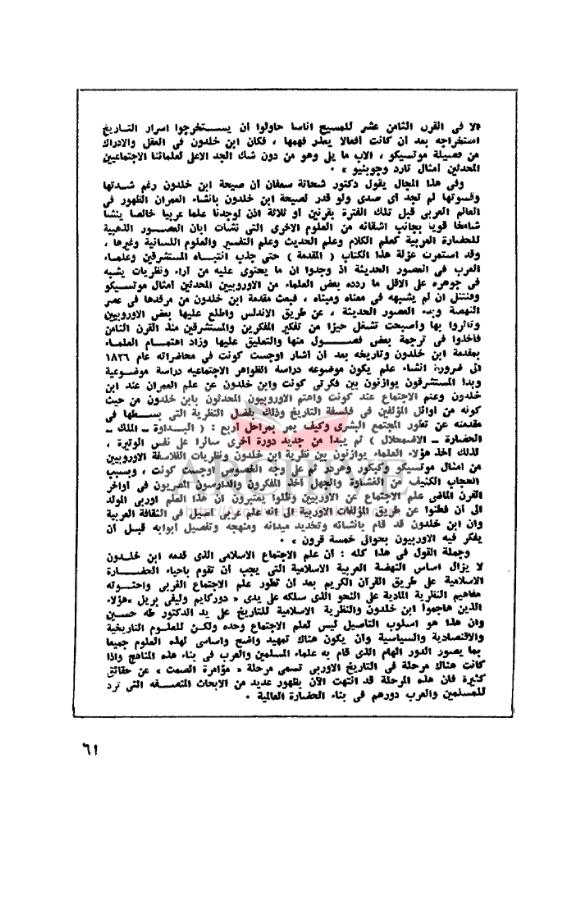 الا فى القرن الثامن عشر للمسيح اناسا حاولوا ان يستخرجوا اسرار التاريخ
استخراجه بعد أن كانت أفعالا يعلر فهمها ، فكان ابن خلدون فى العقل والادراك
من فصيلة موتسيكو ، الاب ما يلى وهو من دون شك الجد الاعلى لعلمائنا الاجتماعيين
المحدثين أمثال تارد وجوبنيو » .
وفى هذا المجال يقول دكتور شحاتة سعفان أن صيحة ابن خلدون رغم شدتها
وقسوتها لم تجد أى صدى ولو قدر لصيحة ابن خلدون بانشاء العمران الظهور فى
العالم العربى قبل تلك الفترة بقرنين أو ثلاثة اذن لوجدنا علما عربيا خالصا ينشأ
شامخا قويا بجانب أشقائه من العلوم الاخرى التى نشأت ابان العصور الذهبية
للحضارة العربية كعلم الكلام وعلم الحديث وعلم التفسير والعلوم اللسانية وغيرها ،
وقد استمرت عزلة هذا الكتاب ( المقدمة ) حتى جذب انتباه المستشرقين وعلماء
العرب فى العصور الحديثة اذ وجدوا أن ما يحتوى عليه من آراء ونظريات يشبه
فى جوهره على الاقل ما ردده بعض العلماء من الاوروبيين المحدثين أمثال موتسيكو
وفنتنل ان لم يشبهه فى معناه ومبناه ، فبعث مقدمة ابن خلدون من مرقدها فى عصر
النهضة وبدء العصور الحديثة ، عن طريق الاندلس واطلع عليها بعض الاوروبيين
وتأثروا بها وأصبحت تشغل حيزا من تفكير المفكرين والمستشرقين منذ القرن الثامن
فأخذوا فى ترجمة بعض فصول منها والتعليق عليها وزاد اهتمام العلماء
بمقدمة ابن خلدون وتاريخه بعد أن أشار أوجست كونت فى محاضراته عام ١٨٢٦
الى ضرورة انشاء علم يكون موضوعه دراسة الظواهر الاجتماعيه دراسة موضوعية
وبدأ المستشرقون يوازنون بين فكرتى كونت وابن خلدون عن علم العمران عند ابن
خلدون وعنم الاجتماع عند كونت واهتم الاوروبيون المحدثون بابن خلدون من حيث
كونه من أوائل المؤلفين فى فلسفة التاريخ وذلك بفضل النظرية التى بسطها فى
مقدمته عن تطور المجتمع البشرى وكيف يمر بمراحل أربع : ( البداوة ــ الملك ــ
الحضارة ــ الاضمحلال ) ثم يبدأ من جديد دورة أخرى سائرا على نفس الوتيرة ،
لذلك أخذ هؤلاء العلماء يوازنون بين نظرية ابن خلدون ونظريات الفلاسفة الاوروبيين
من أمثال موتسيكو وفيكور وهردر ثم على وجه الخصوص أوجست كونت ، وبسبب
الحجاب الكثيف من الغشاوة والجهل أخذ المفكرون والدارسون المصريون فى أواخر
القرن الماضى علم الاجتماع عن الاوربيين وظلوا يعتبرون أن هذا العلم أوربى المولد
الى أن فطنوا عن طريق المؤلفات الاوربية الى أنه علم عربى أصيل فى الثقافة العربية
وان ابن خلدون قد قام بانشائه وتحديد ميدانه ومنهجه وتفصيل أبوابه قبل أن
يفكر فيه الاوربيون بحوالى خمسة قرون » .
وجملة القول فى هذا كله : أن علم الاجتماع الاسلامى الذى قدمه ابن خلدون
لا يزال أساس النهضة العربية الاسلامية التى يجب أن تقوم باحياء الحضارة
الاسلامية على طريق القرآن الكريم بعد أن تطور علم الاجتماع الغربى واحتوته
مفاهيم النظرية المادية على النحو الذى سلكه على يدى « دوركايم وليفى بريل » هؤلاء
الذين هاجموا ابن خلدون والنظرية الاسلامية للتاريخ على يد الدكتور طه حسين
وان هذا هو أسلوب التأصيل ليس لعلم الاجتماع وحده ولكن للعلوم التاريخية
والاقتصادية والسياسية وأن يكون هناك تمهيد واضح وأساسى لهذه العلوم جميعا
بما يصور الدور الهام الذى قام به علماء المسلمين والعرب فى بناء هذه المناهج واذا
كانت هناك مرحلة فى التاريخ الاوربى تسمى مرحلة « مؤامرة الصمت » عن حقائق
كثيرة فان هذه المرحلة قد انتهت الآن بظهور عديد من الابحاث المنصفه التى ترد
للمسلمين والعرب دورهم فى بناء الحضارة العالمية .
٦١